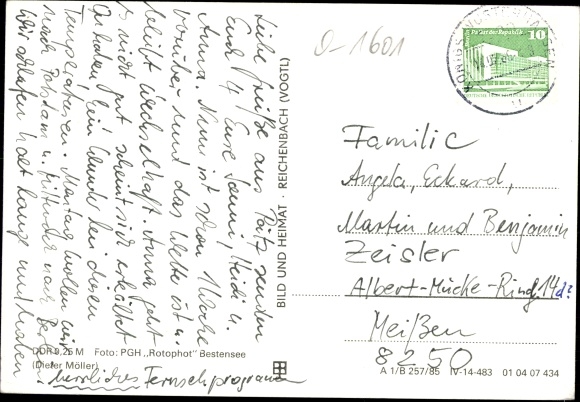 Liebe Grüße aus Pätz senden
Euch 4 Eure Sanni, Heidi u.
Anna. Nun ist schon 1 Woche
vorüber und das Wetter ist u.
bleibt wechselhaft. Anna geht
es nicht gut scheint sich erkältet
zu haben. Ein Wunder bei diesen
Temperaturen. Montag wollen wir
nach Potsdam u. Mittwoch nach Berlin.
Wir schlafen halt lange und haben
herrliches Fernsehprogramm
DDR 0,25 M Foto: PGH „Rotophot" Bestensee
(Dieter Möller)
BILD UND HEIMAT · REICHENBACH (VOGTL)
0-1601
Palast der Republik
10
Familie
Angela, Eckard,
Martin und Benjamin
Zeisler
Albert-Mücke-Ring 14d?
Meißen
8250
A 1/B 257/85 IV-14-483 01 04 07 434